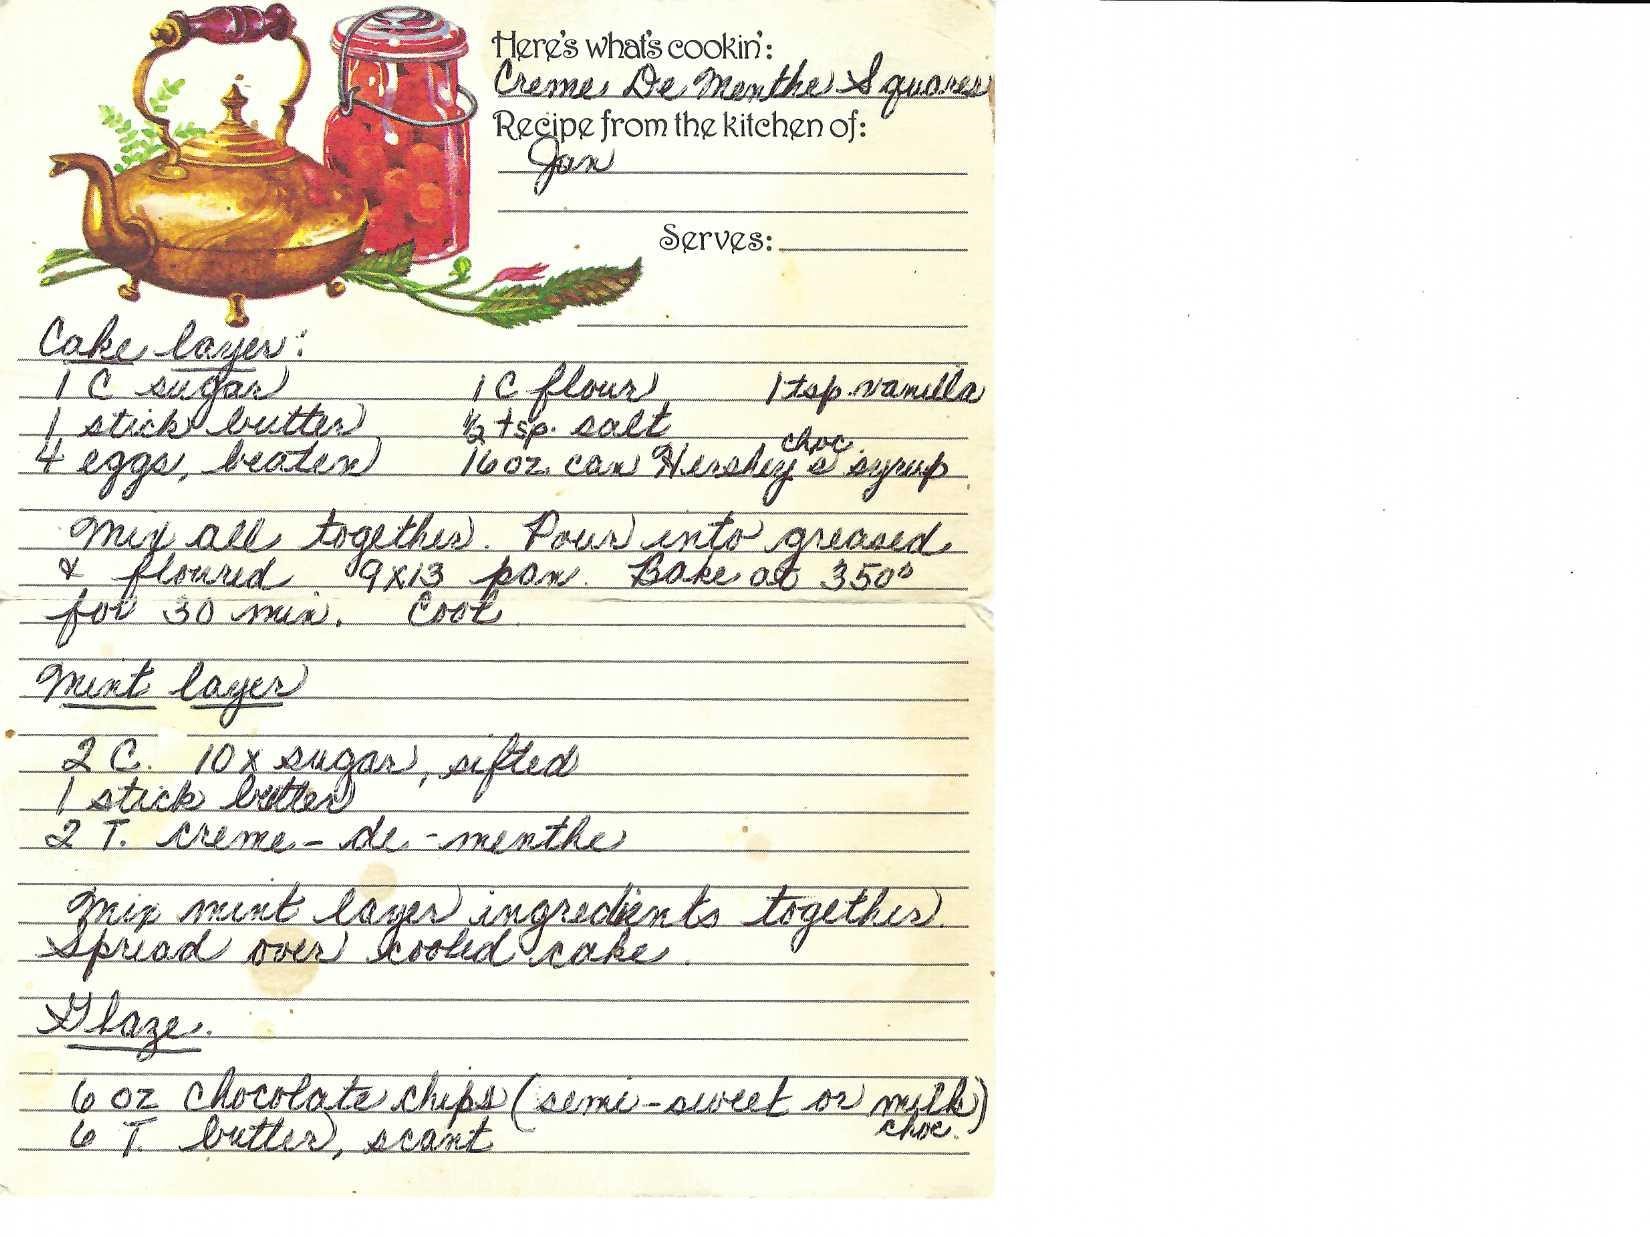 Here's what's cookin':
Creme De Menthe Squares
Recipe from the kitchen of:
Jan
Serves:
Cake layer:
1 C sugar 1 C flour 1 tsp. vanilla
1 stick butter ½ tsp. salt
4 eggs, beaten 16 oz. can Hershey's choc. syrup
Mix all together. Pour into greased
& floured 9x13 pan. Bake at 350°
for 30 min. Cool
Mint layer
2 C. 10x sugar, sifted
1 stick butter
2 T. creme-de-menthe
Mix mint layer ingredients together.
Spread over cooled cake.
Glaze.
6 oz chocolate chips (semi-sweet or milk choc.)
6 T. butter, scant